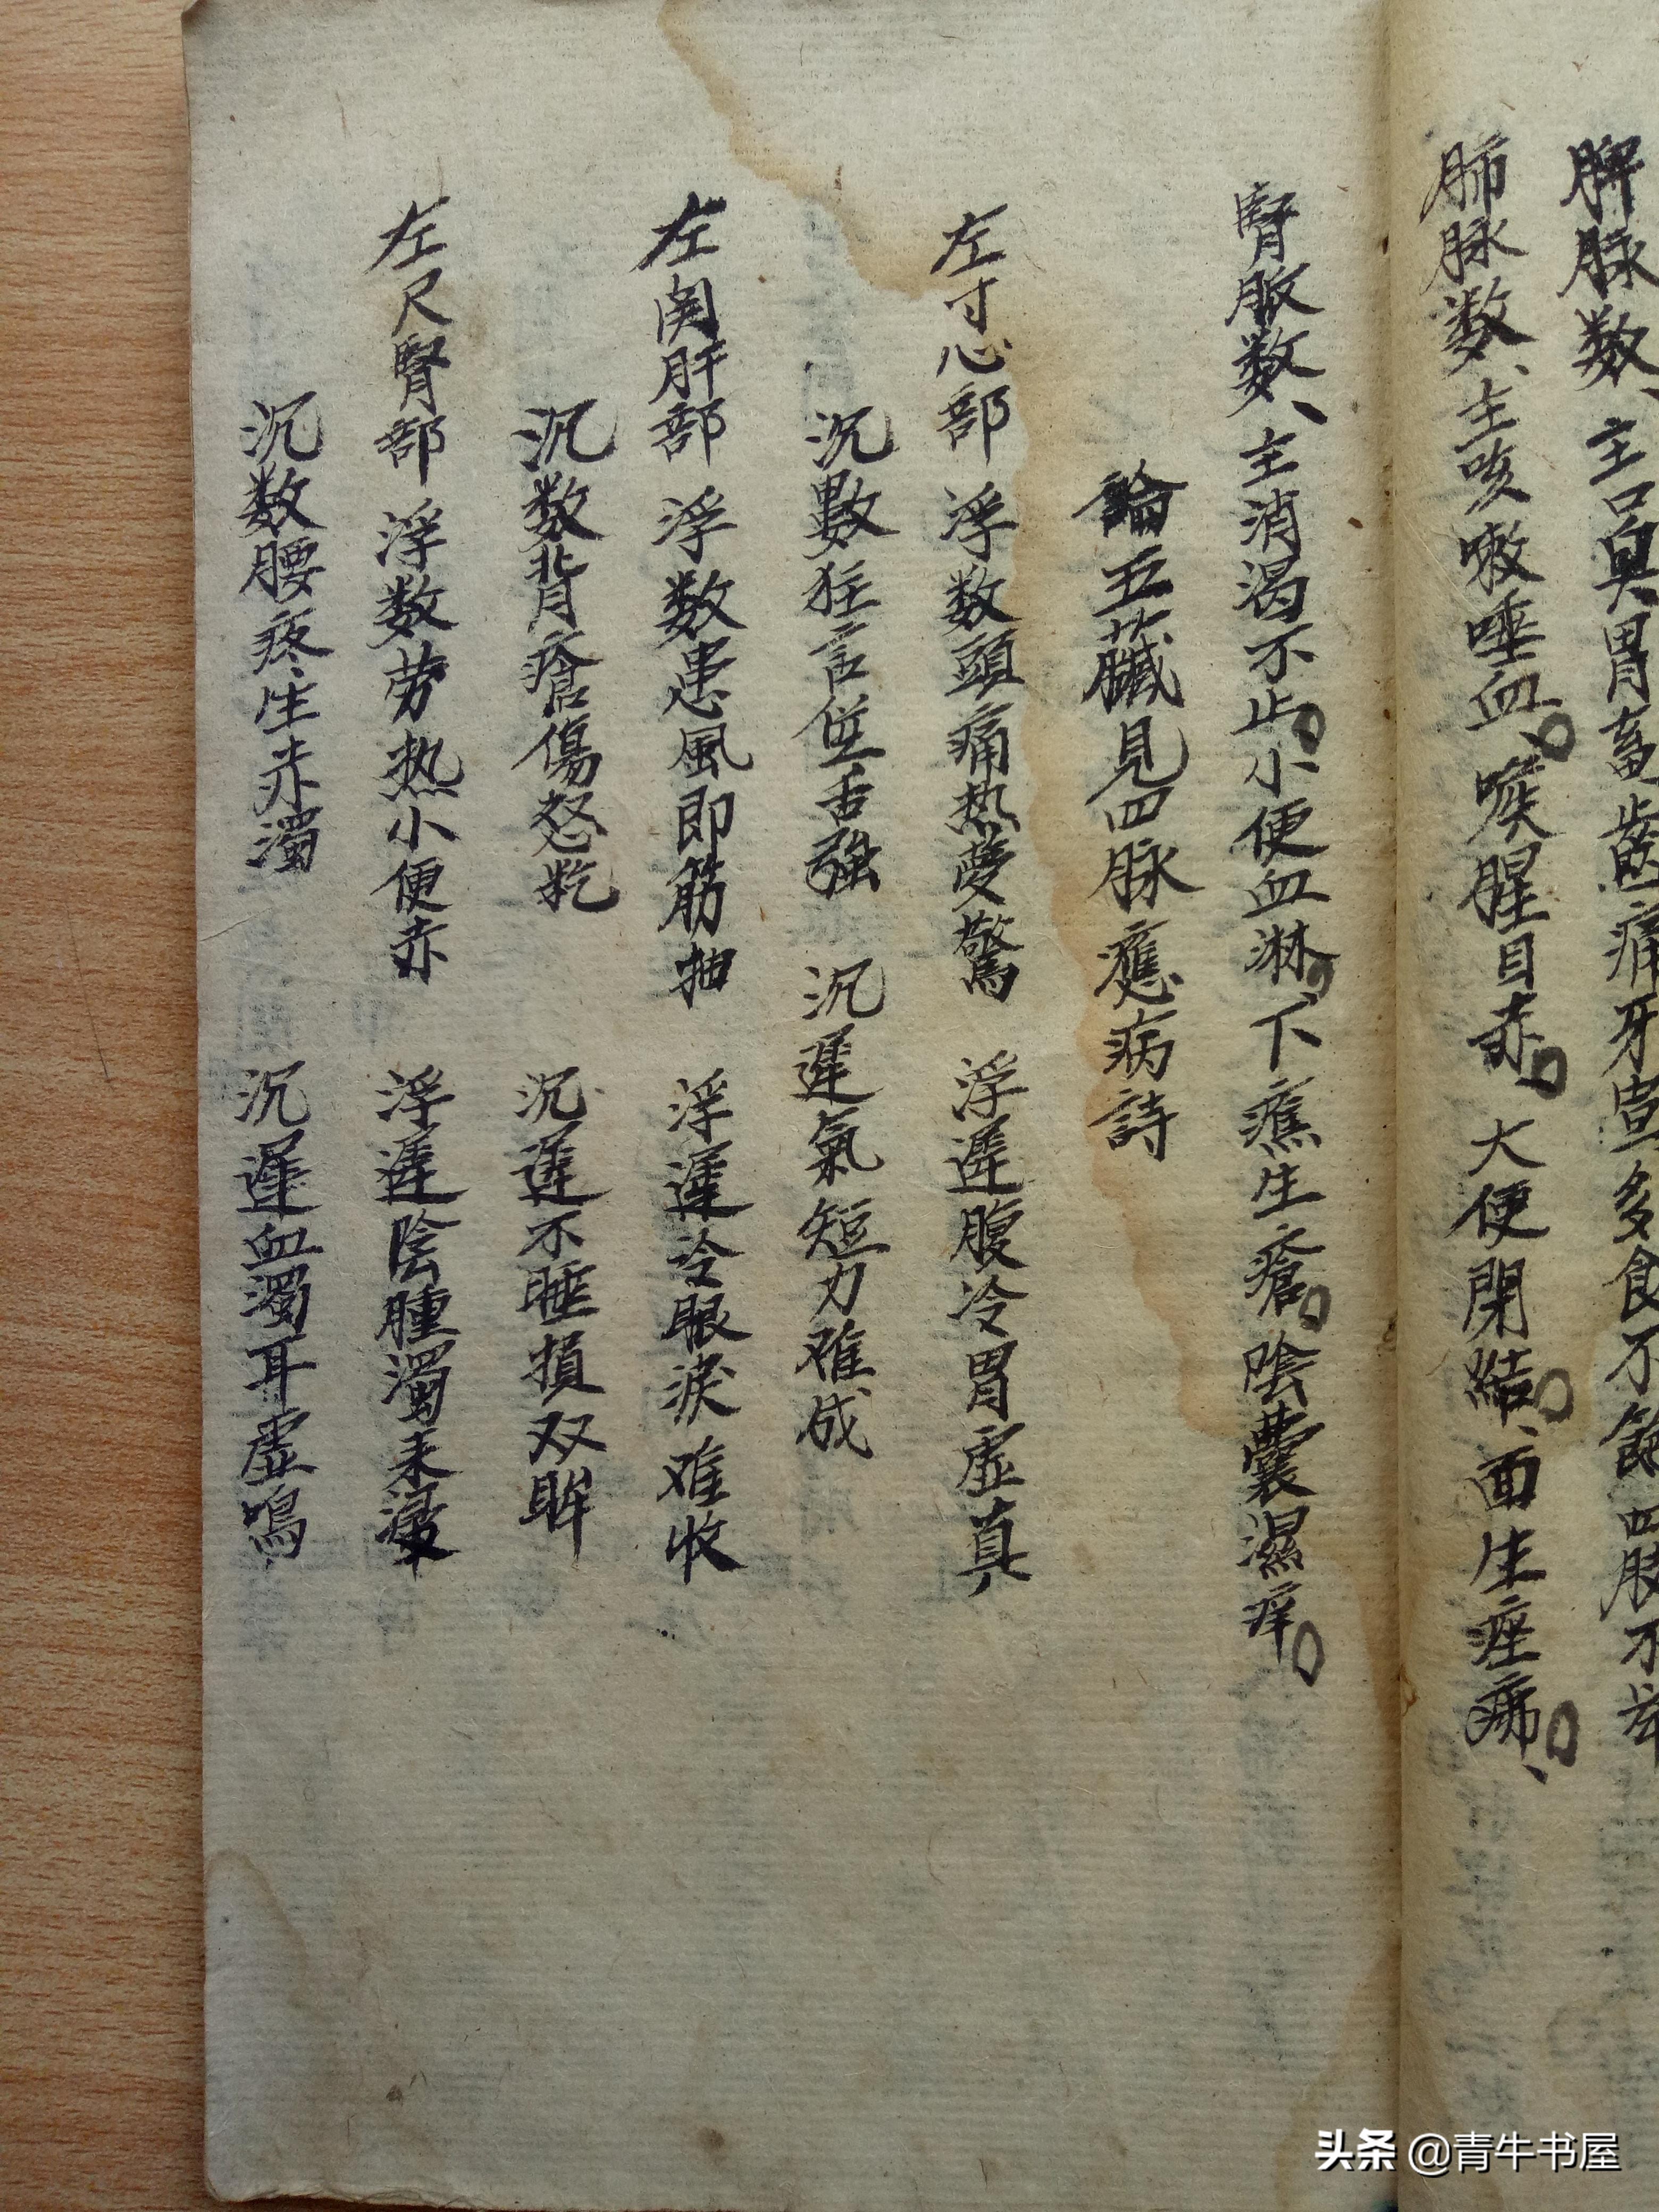 脾脉数、主口臭胃畜齒痛牙宣多食不飽四肢不举
肺脉数、主咳嗽唾血、喉腥目赤。大便閉結、面生痤痱、
腎脈数、主消渴不止。小便血淋。下瘬生瘡。陰囊濕痒。
論五臟見四脉應病詩
左寸心部 浮数頭痛热夢驚 浮遲腹冷胃虛真
沉數狂言並舌強 沉遲氣短力难成
左関肝部 浮数患風即筋抽 浮遲冷眼淚难收
沉数背瘡傷怒 沉遲不睡損双眸
左尺腎部 浮数劳热小便赤 浮遲陰腫濁来
沉数腰疼生赤濁 沉遲血濁耳虛鳴
头条 @青牛书屋